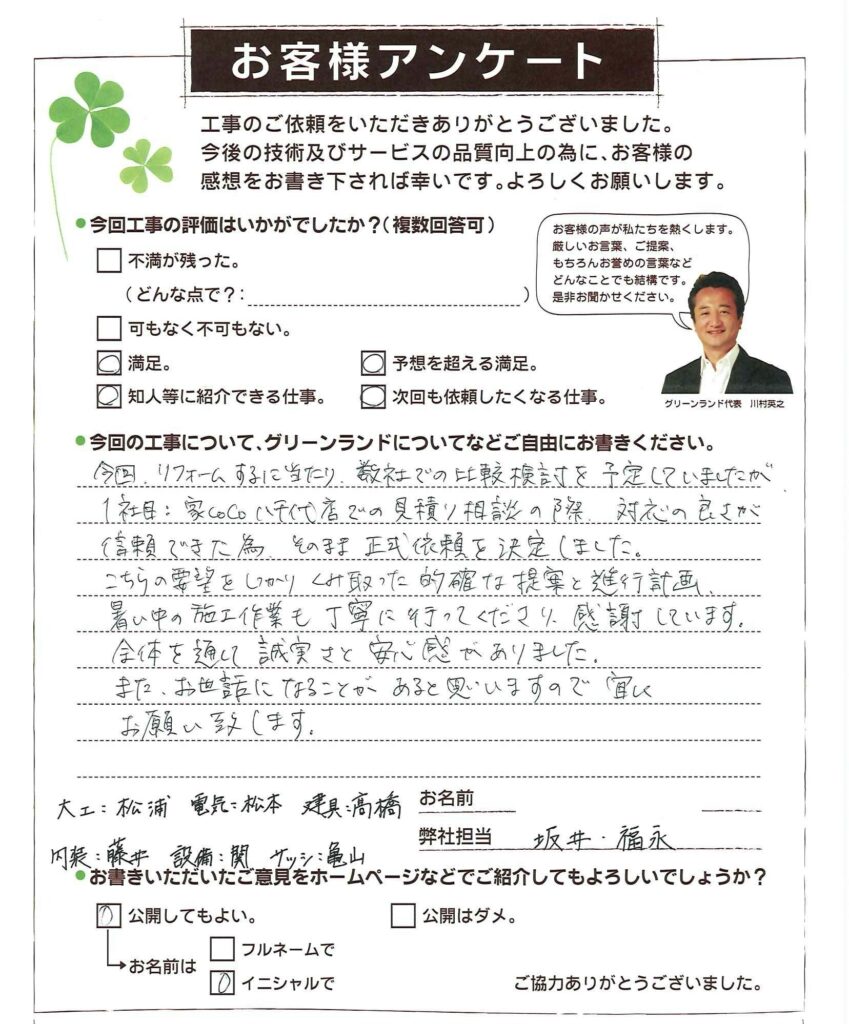 お客様アンケート
工事のご依頼をいただきありがとうございました。
今後の技術及びサービスの品質向上の為に、お客様の
感想をお書き下されば幸いです。よろしくお願いします。
●今回工事の評価はいかがでしたか？（複数回答可）
お客様の声が私たちを熱くします。
厳しいお言葉、ご提案、
もちろんお誉めの言葉など
どんなことでも結構です。
是非お聞かせください。
不満が残った。
（どんな点で？：　）
可もなく不可もない。
満足。　予想を超える満足。
知人等に紹介できる仕事。　次回も依頼したくなる仕事。
グリーンランド代表　川村英之
●今回の工事について、グリーンランドについてなどご自由にお書きください。
今回、リフォームするに当たり、数社での比較検討を予定していましたが、
1社目：家CoCo八千代店での見積り相談の際、対応の良さが
信頼できた為、そのまま正式依頼を決定しました。
こちらの要望をしっかりくみ取った的確な提案と進行計画、
暑い中の施工作業も丁寧に行ってくださり、感謝しています。
全体を通して誠実さと安心感がありました。
また、お世話になることがあると思いますので宜しく
お願い致します。
大工：松浦　電気：松本　建具：高橋　お名前
弊社担当　坂井・福永
内装：藤井　設備：関　サッシ：亀山
●お書きいただいたご意見をホームページなどでご紹介してもよろしいでしょうか？
公開してもよい。　公開はダメ。
お名前は　フルネームで
イニシャルで　ご協力ありがとうございました。